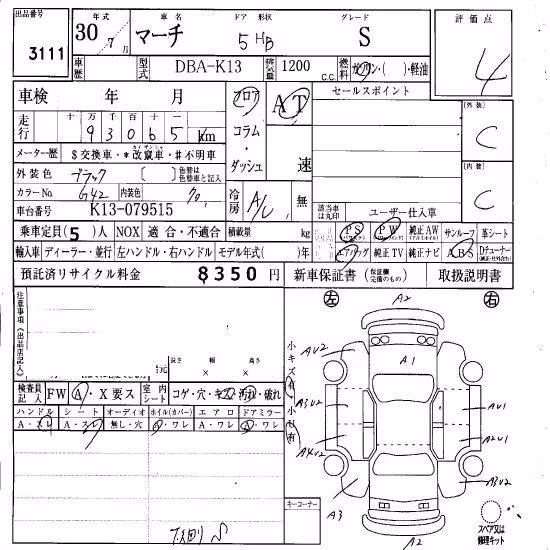 出品番号
3111
年式 車名 ドア 形状 グレード 評価点
30年 7月 マーチ 5 HB S 4
車歴 型式 DBA-K13 排気量 1200 c.c. 燃料 ガソリン・( )・軽油
車検 年 月 フロア AT セールスポイント
コラム・ダッシュ 速
走行 十 万 千 百 十 一
93065 km
メーター歴 $交換車・*改竄車・#不明車
外装色 ブラック [ ] 色替は色替車と記入
カラーNo. G42 内装色 クロ
冷房 A/C 無
該当車は丸印
外装 C
内装 C
車台番号 K13-079515
ユーザー仕入車
乗車定員(5)人 NOX 適合・不適合 積載量 kg
PS PW 純正AW サンルーフ 革シート
輸入車 ディーラー・並行 左ハンドル・右ハンドル モデル年式( )年
エアバッグ 純正TV 純正ナビ ABS Dチューナー
預託済リサイクル料金 8350円 新車保証書(保証欄完備のもの) 取扱説明書
左 右
注意事項(出品店記入)
長さ 幅 高さ
× ×
小キズ有・小凹有
検査員記入 FW A・X要ス 室内シート コゲ・穴・キズ・汚れ・破れ
ハンドル シート オーディオ ホイル(カバー) エアロ ドアミラー
A・スレ A・スレ 無し・穴 A・ワレ A・ワレ A・ワレ
A2
A1
AU2
A3U2
A4U2
A3
AU1
A2U1
A3U2
A2
キーコーナー
スペア又は修理キット